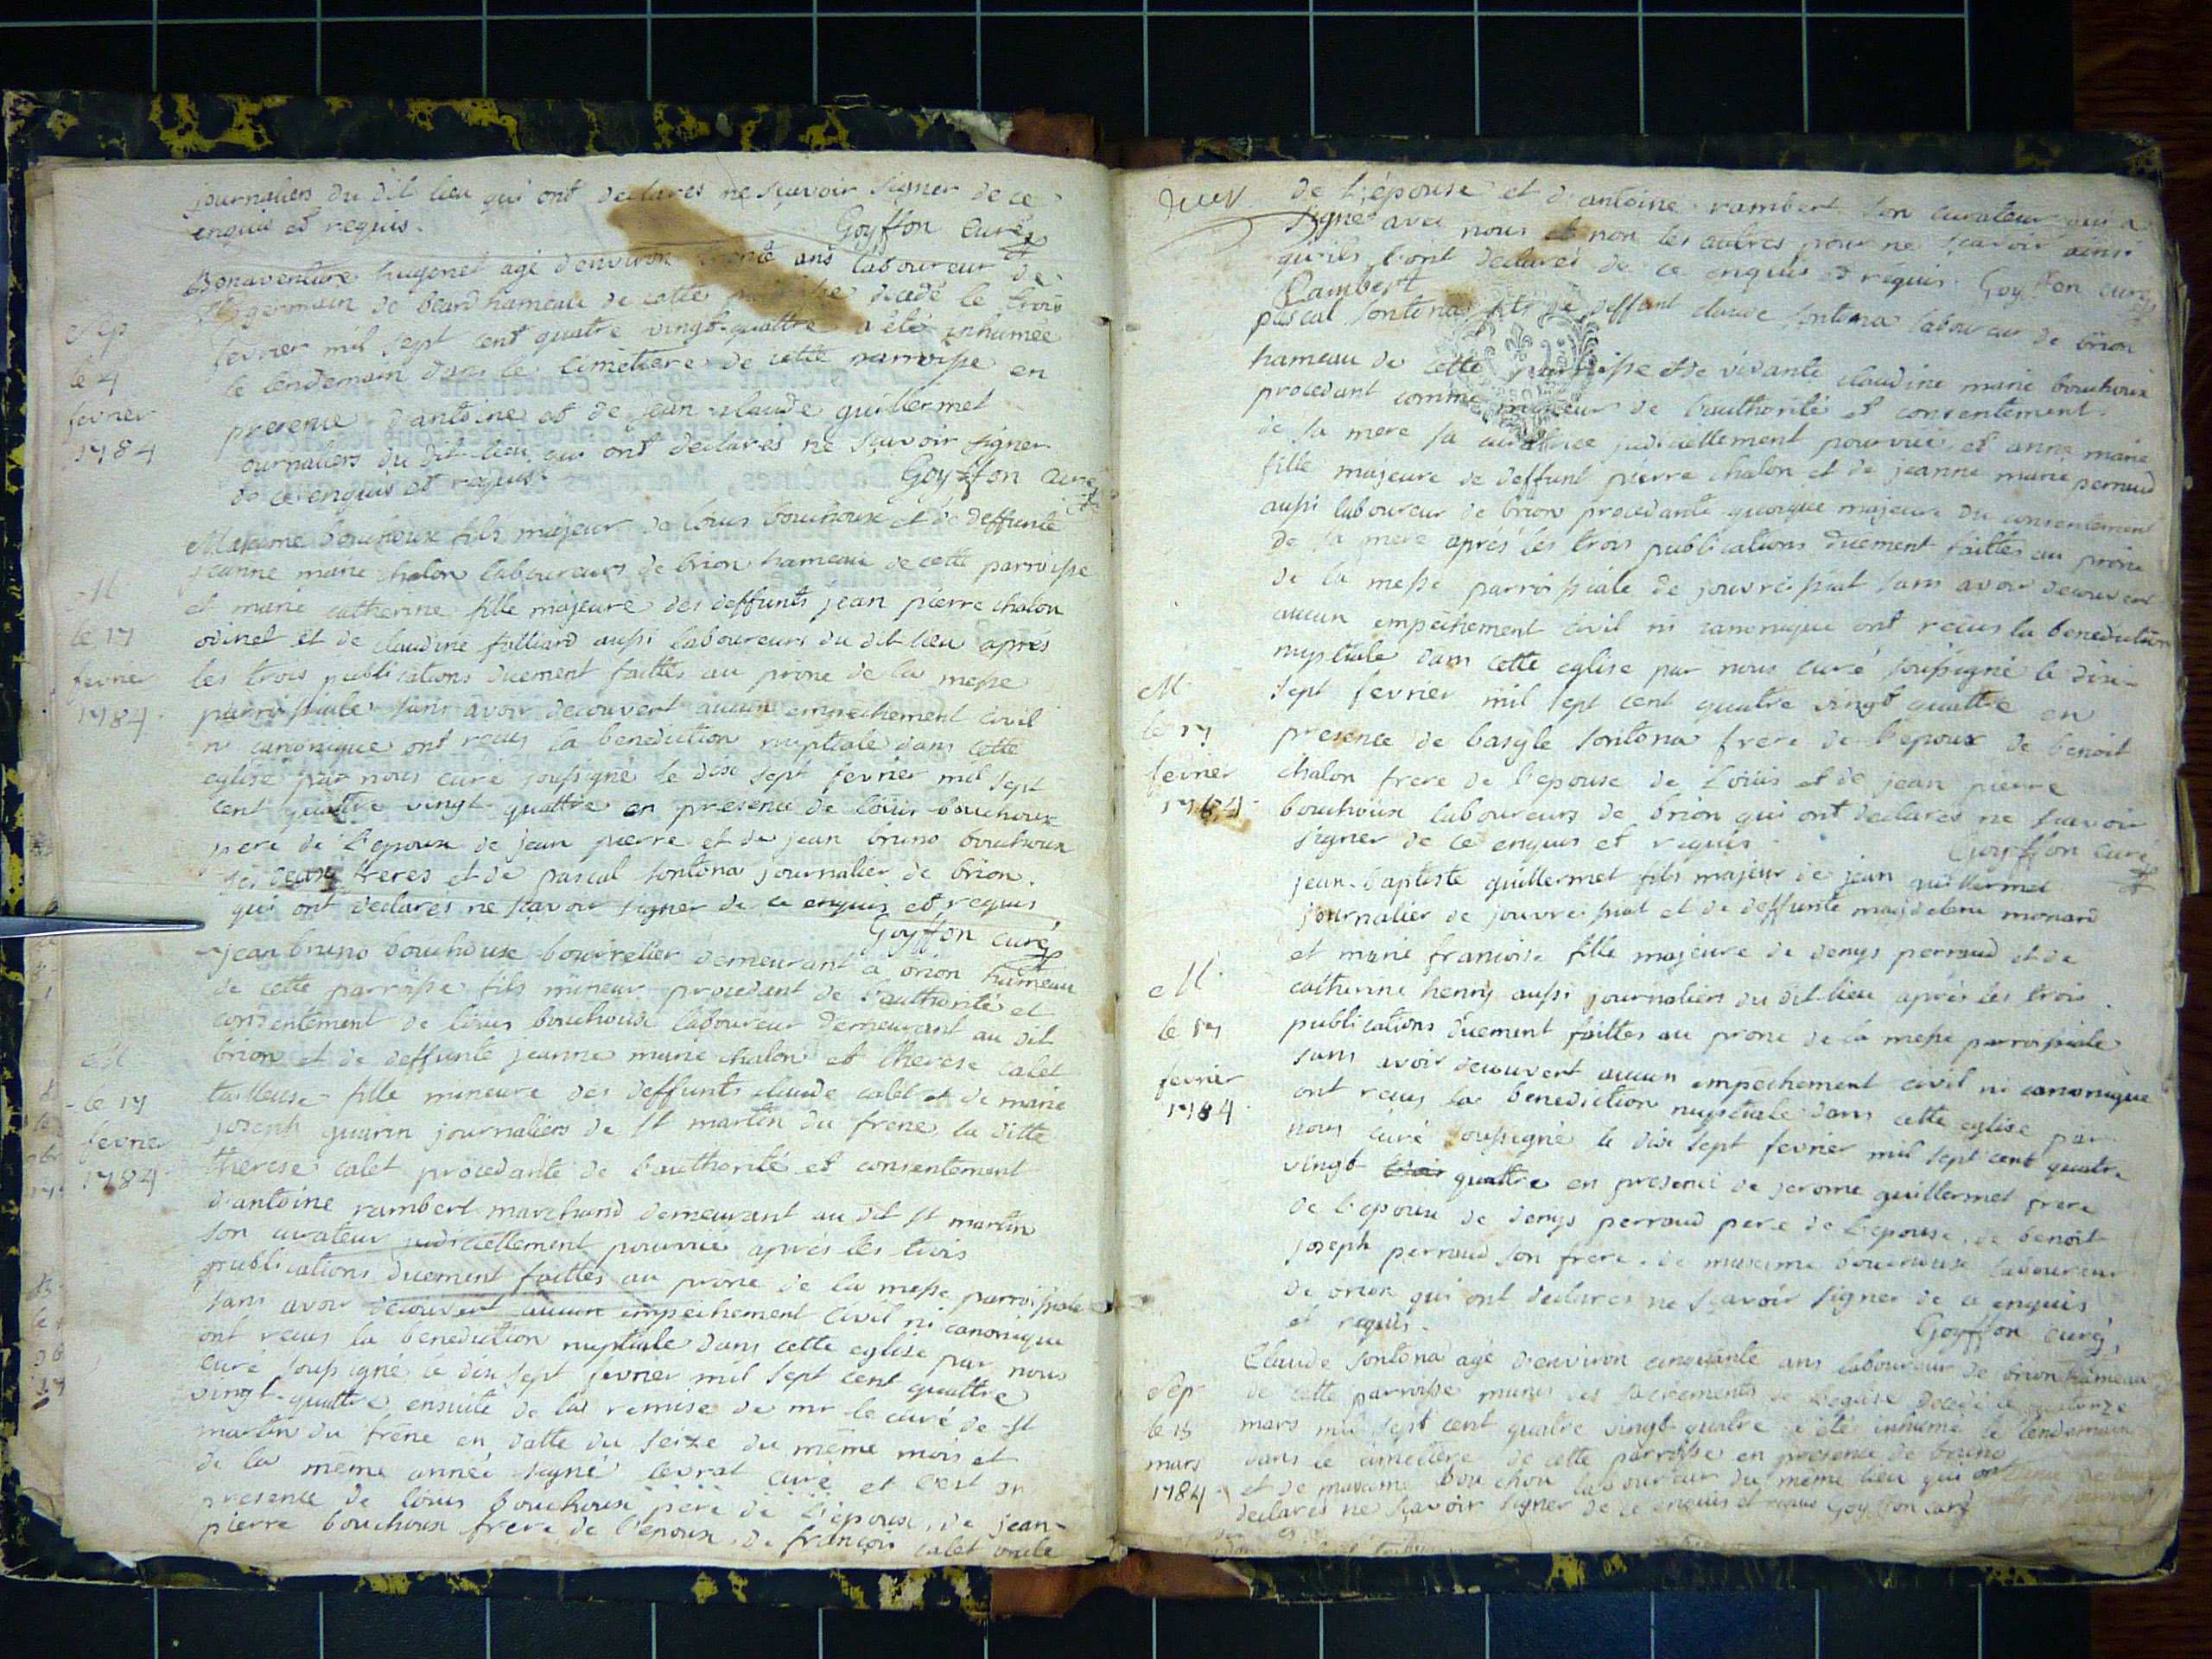 journaliers du dit lieu qui ont declares ne sçavoir signer de ce
enquis et requis.
Goyffon curé
Sep
le 4
fevrier
1784
Bonaventure hugonet agé d'environ trente ans laboureur de
St germain de beard hameau de cette decedé le trois
fevrier mil sept cent quatre vingt-quattre a été inhumée
le lendemain dans le cimetiere de cette parroisse en
presence d'antoine et de jean claude guillermet
journaliers du dit-lieu qui ont declares ne sçavoir signer
de ce enquis et requis.
Goyffon curé
M
le 17
fevrier
1784
Maxime bouchoux fils majeur de loüis bouchoux et de deffunte
jeanne marie chalon laboureurs de brion hameau de cette parroisse
et marie catherine fille majeure des deffunts jean pierre chalon
odinet et de claudine folliard aussi laboureurs du dit lieu aprés
les trois publications duement faittes au prone de la messe
parroissiale sans avoir decouvert aucun empechement civil
ni canonique ont reçus la benediction nuptiale dans cette
eglise par nous curé soussigné le dix sept fevrier mil sept
cent quattre vingt-quattre en presence de loüis bouchoux
pere de l'epoux de jean pierre et de jean bruno bouchoux
ses deux freres et de pascal sontona journalier de brion.
qui ont declares ne sçavoir signer de ce enquis et requis
Goyffon curé
M
le 17
fevrier
1784
jean bruno bouchoux bourrelier demeurant a brion hameau
de cette parroisse fils mineur procedant de l'authorité et
consentement de loüis bouchoux laboureur demeurant au dit
brion et de deffunte jeanne marie chalon et therese calet
tailleuse fille mineure des deffunts claude calet et de marie
joseph guarin journaliers de St martin du frene, la ditte
therese calet procedante de l'authorité et consentement
d'antoine rambert marchand demeurant au dit st martin
son curateur judiciellement pourvue aprés les trois
publications duement faittes au prône de la messe parroissiale
sans avoir decouvert aucun empechement civil ni canonique
ont reçus la benediction nuptiale dans cette eglise par nous
curé soussigné le dix sept fevrier mil sept cent quattre
vingt-quattre ensuite de la remise de mr le curé de st
martin du frêne en datte du seize du même mois et
de la même année signé levrat curé et c'est en
presence de loüis bouchoux pere de l'epoux, de jean-
pierre bouchoux frere de l'epoux, de françois calet oncle
de l'épouse et d'antoine rambert son curateur qui a
signé avec nous et non les autres pour ne sçavoir ainsi
qu'ils l'ont declarés de ce enquis et requis. Goyffon curé
Rambert
M
le 17
fevrier
1784
pascal sontona fils de deffunt claude sontona laboureur de brion
hameau de cette parroisse et de vivante claudine marie bouchoux
procedant comme mineur de l'authorité et consentement
de sa mere sa curatrice judiciellement pourvue, et anne marie
fille majeure de deffunt pierre chalon et de jeanne marie perraud
aussi laboureur de brion procedante quoique majeure du consentement
de sa mere aprés les trois publications duement faittes au prone
de la messe parroissiale de jouvreissiat sans avoir decouvert
aucun empechement civil ni canonique ont reçus la benediction
nuptiale dans cette eglise par nous curé soussigné le dix-
sept fevrier mil sept cent quatre vingt quattre en
presence de basyle sontona frere de l'epoux de benoit
chalon frere de l'epouse de Loüis et de jean pierre
bouchoux laboureurs de brion qui ont declares ne sçavoir
signer de ce enquis et requis.
Goyffon curé
M
le 17
fevrier
1784
jean-baptiste guillermet fils majeur de jean guillermet
journalier de jouvreissiat et de deffunte magdelene monard
et marie francoise fille majeure de denys perraud et de
catherine henry aussi journaliers du dit-lieu aprés les trois
publications duement faittes au prone de la messe parroissiale
sans avoir decouvert aucun empechement civil ni canonique
ont reçus la benediction nuptiale dans cette eglise par
nous curé soussigné le dix sept fevrier mil sept cent quatre
vingt quattre en presence de jerome guillermet frere
de l'epoux de denys perraud pere de l'epouse, de benoit
joseph perraud son frere, de maxime bouchoux laboureur
de brion qui ont declares ne sçavoir signer de ce enquis
et requis.
Goyffon curé
Sep
le 15
mars
1784
Claude sontona agé d'environ cinquante ans laboureur de brion hameau
de cette parroisse munis des sacrements de l'eglise decedé le quatorze
mars mil sept cent quatre vingt-quatre a été inhumé le lendemain
dans le cimetiere de cette parroisse en presence de bruno
et de maxime bouchou laboureur du même lieu qui ont
declares ne sçavoir signer de ce enquis et requis Goyffon curé